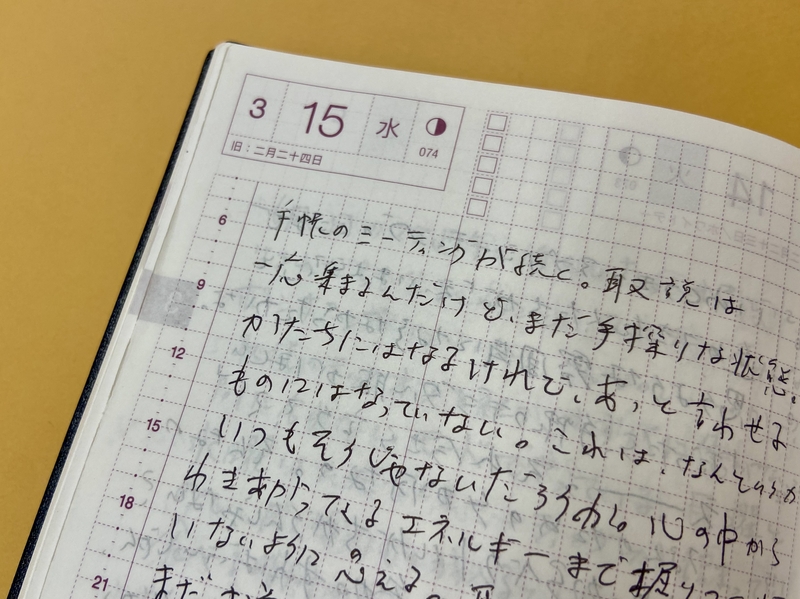 3 15 水
074
旧:二月二十四日
手帳のミーティングが続く。取説は
一応集まるんだけど、まだ手探りな状態。
かたちにはなるけれど、あっと言わせる
ものにはなっていない。これは、なんというか
いつもそうじゃないだろうか。心の中から
わきあがってくるエネルギーまで掘り
いないように思える。
まだ
6
9
12
15
18
21
14
火